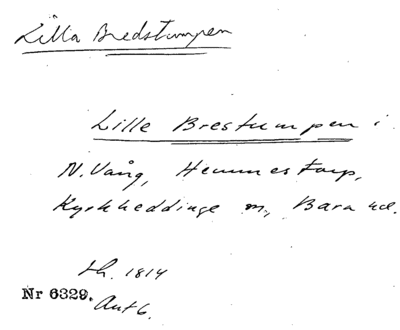 Lilla Bredstumpen
Lille Brestumpen i
N. Vång, Hemmestorp,
Kyrkheddinge sn, Bara hd.
lh. 1814
Nr 6329.
Ant 6.